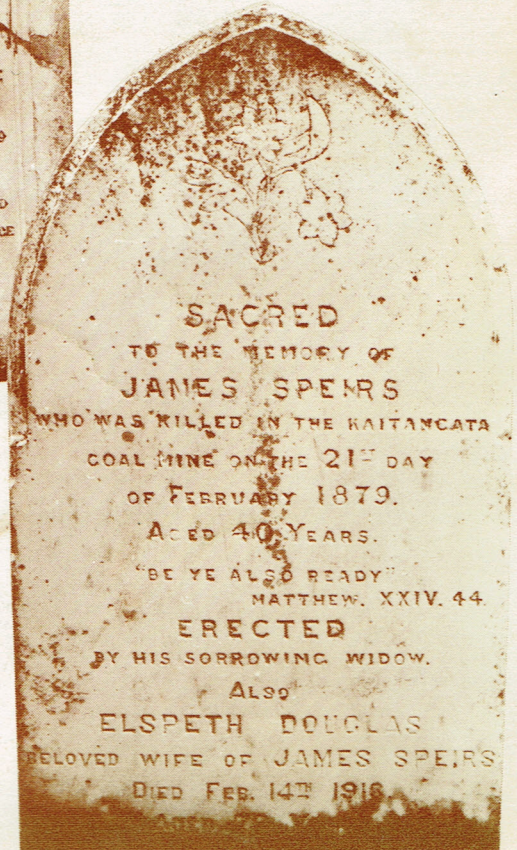 SACRED
TO THE MEMORY OF
JAMES SPEIRS
WHO WAS KILLED IN THE KAITANGATA
COAL MINE ON THE 21ST DAY
OF FEBRUARY 1879.
AGED 40 YEARS.
"BE YE ALSO READY"
MATTHEW. XXIV. 44.
ERECTED
BY HIS SORROWING WIDOW.
ALSO
ELSPETH DOUGLAS
BELOVED WIFE OF JAMES SPEIRS
DIED FEB. 14TH